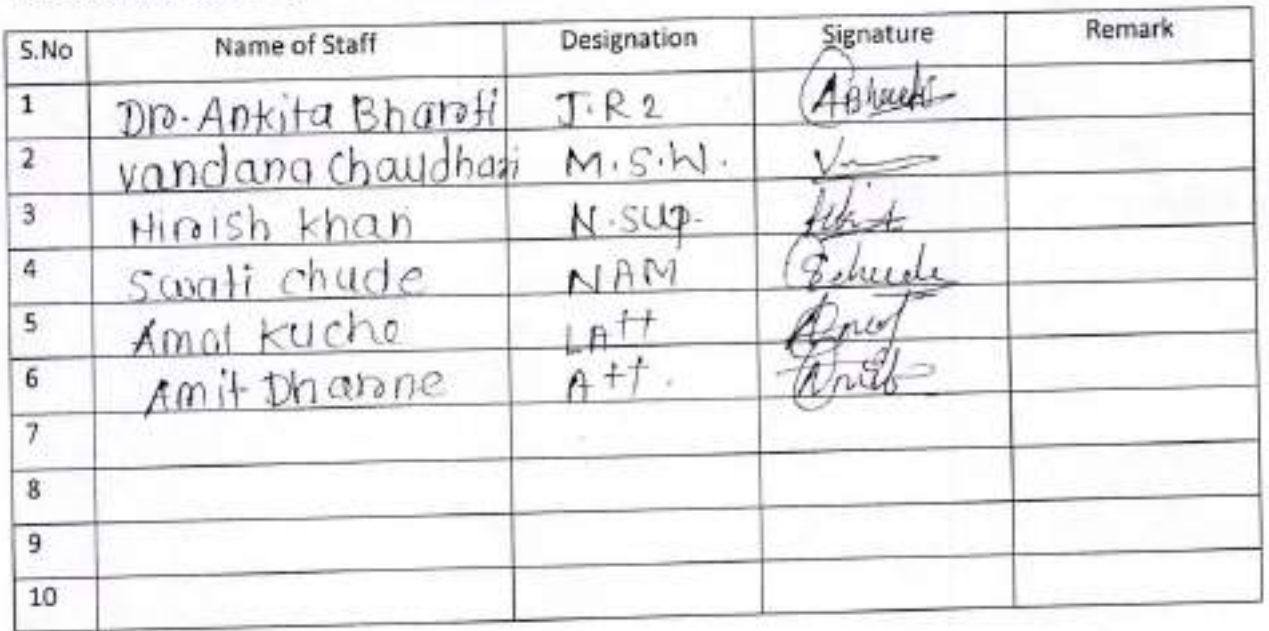 S.No Name of Staff Designation Signature Remark
1 Dr. Ankita Bharati J.R 2 ABharati
2 Vandana Chaudhari M.S.W.
3 Hirish Khan N.Sup.
4 Swati Chude NAM SChude
5 Amol Kuche LAtt
6 Amit Dharne Att.
7
8
9
10